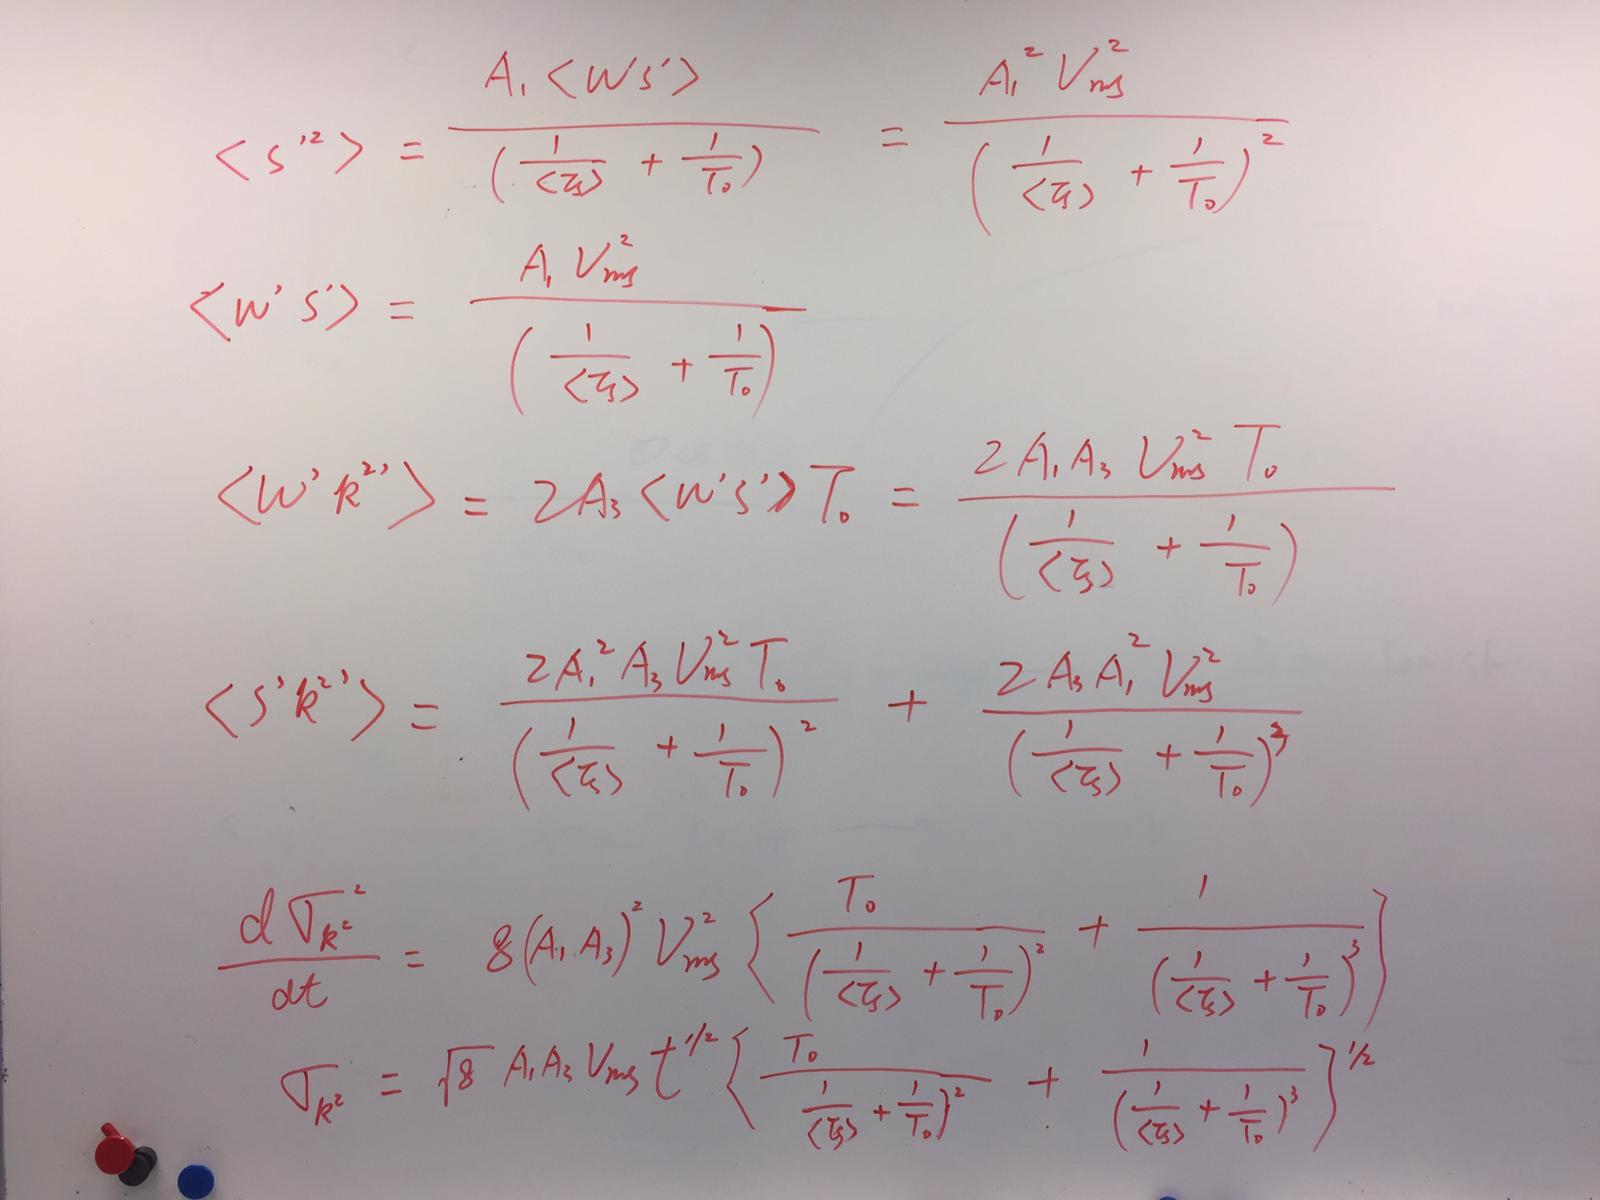 <s'²> = A₁<w's'> / (1/<τₛ> + 1/T₀) = A₁² Vᵣₘₛ² / (1/<τₛ> + 1/T₀)²
<w's'> = A₁ Vᵣₘₛ² / (1/<τₛ> + 1/T₀)
<w'R²'> = 2A₃<w's'>T₀ = 2A₁A₃ Vᵣₘₛ² T₀ / (1/<τₛ> + 1/T₀)
<s'R²'> = 2A₁²A₃ Vᵣₘₛ² T₀ / (1/<τₛ> + 1/T₀)² + 2A₃A₁² Vᵣₘₛ² / (1/<τₛ> + 1/T₀)³
dσ_R²² / dt = 8(A₁A₃)² Vᵣₘₛ² { T₀ / (1/<τₛ> + 1/T₀)² + 1 / (1/<τₛ> + 1/T₀)³ }
σ_R² = √8 A₁A₃ Vᵣₘₛ t^1/2 { T₀ / (1/<τₛ> + 1/T₀)² + 1 / (1/<τₛ> + 1/T₀)³ }^1/2